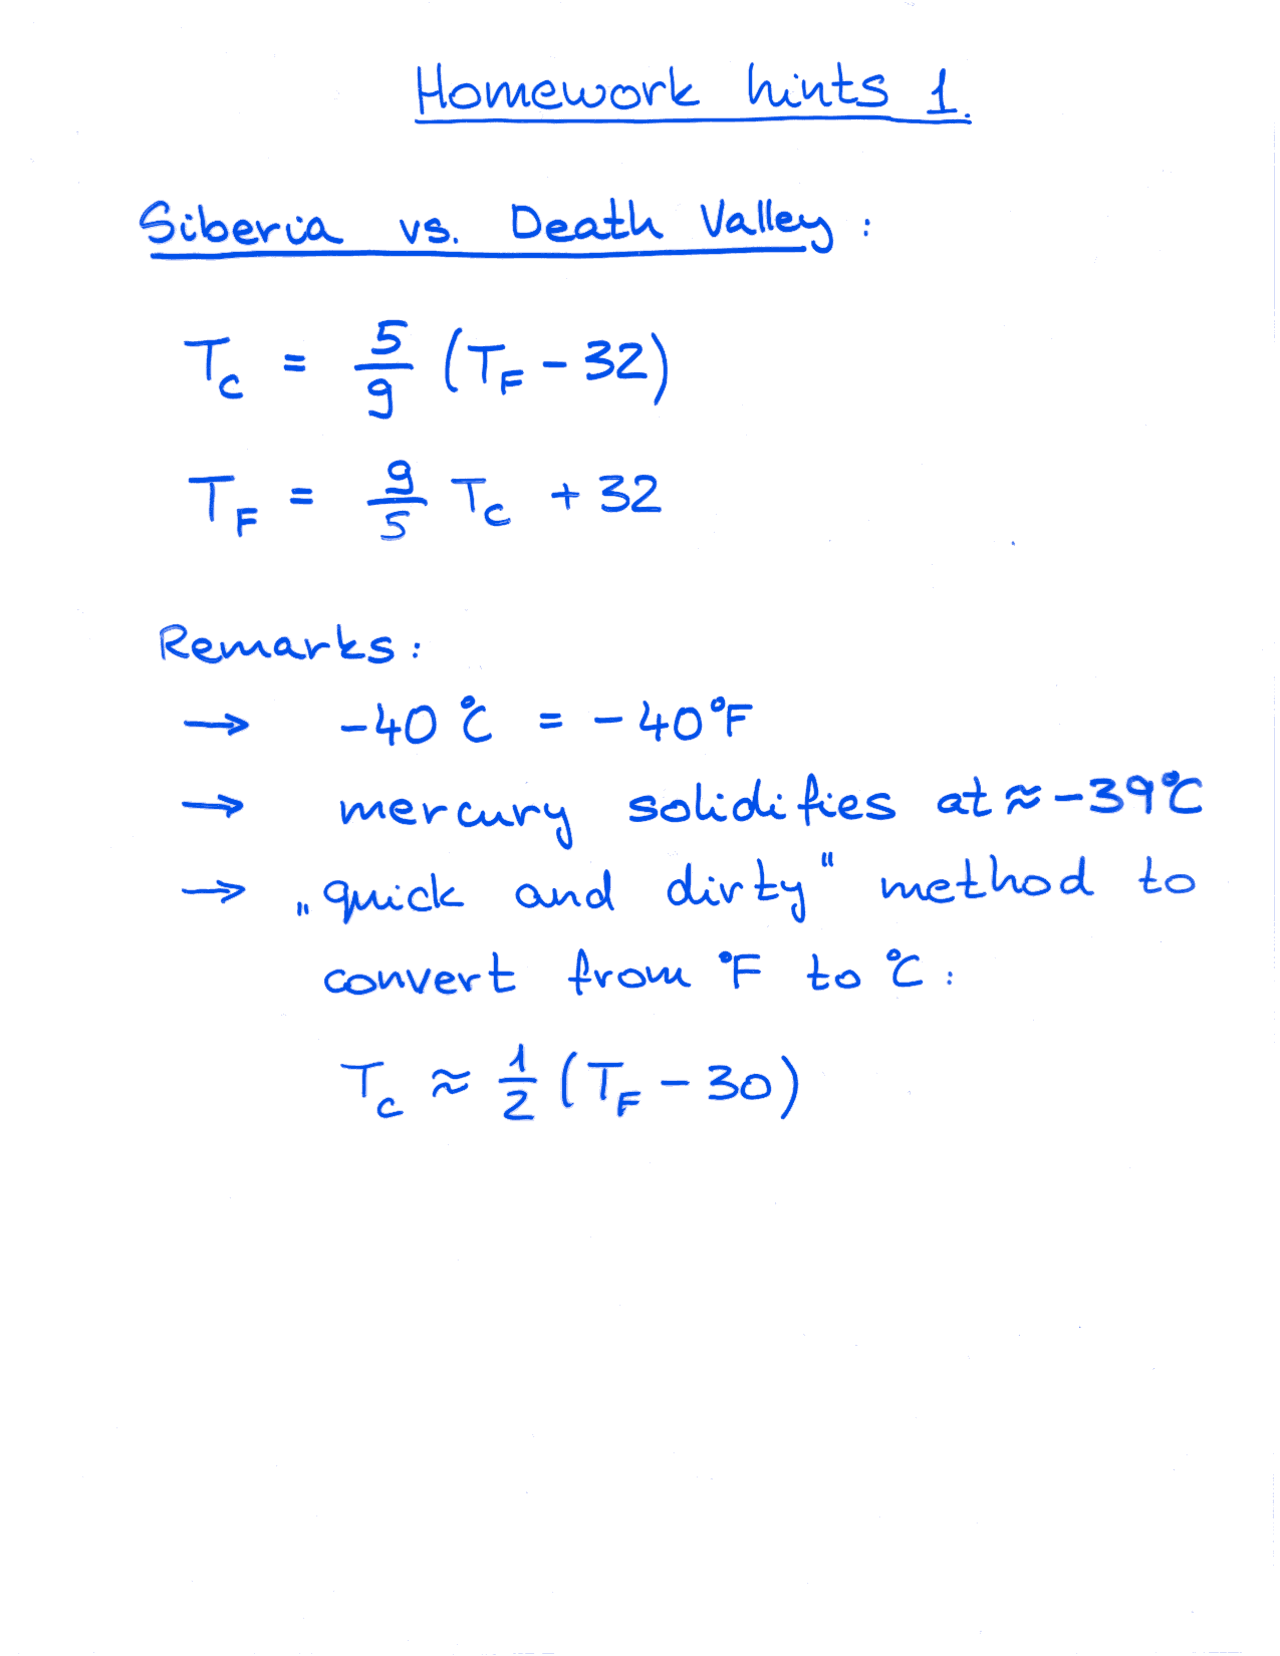 Homework hints 1.
Siberia vs. Death Valley :
T_C = 5/9 (T_F - 32)
T_F = 9/5 T_C + 32
Remarks :
→ -40 °C = -40 °F
→ mercury solidifies at ≈ -39 °C
→ „quick and dirty“ method to
convert from °F to °C :
T_C ≈ 1/2 (T_F - 30)